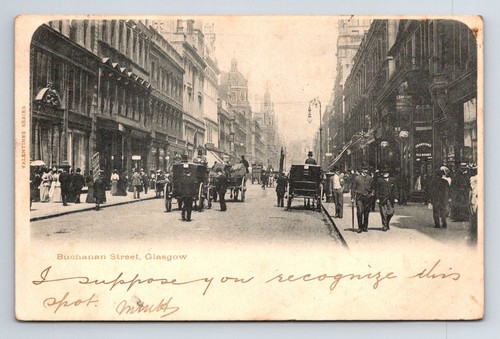 VALENTINES SERIES
Buchanan Street, Glasgow
I suppose you recognize this
spot.